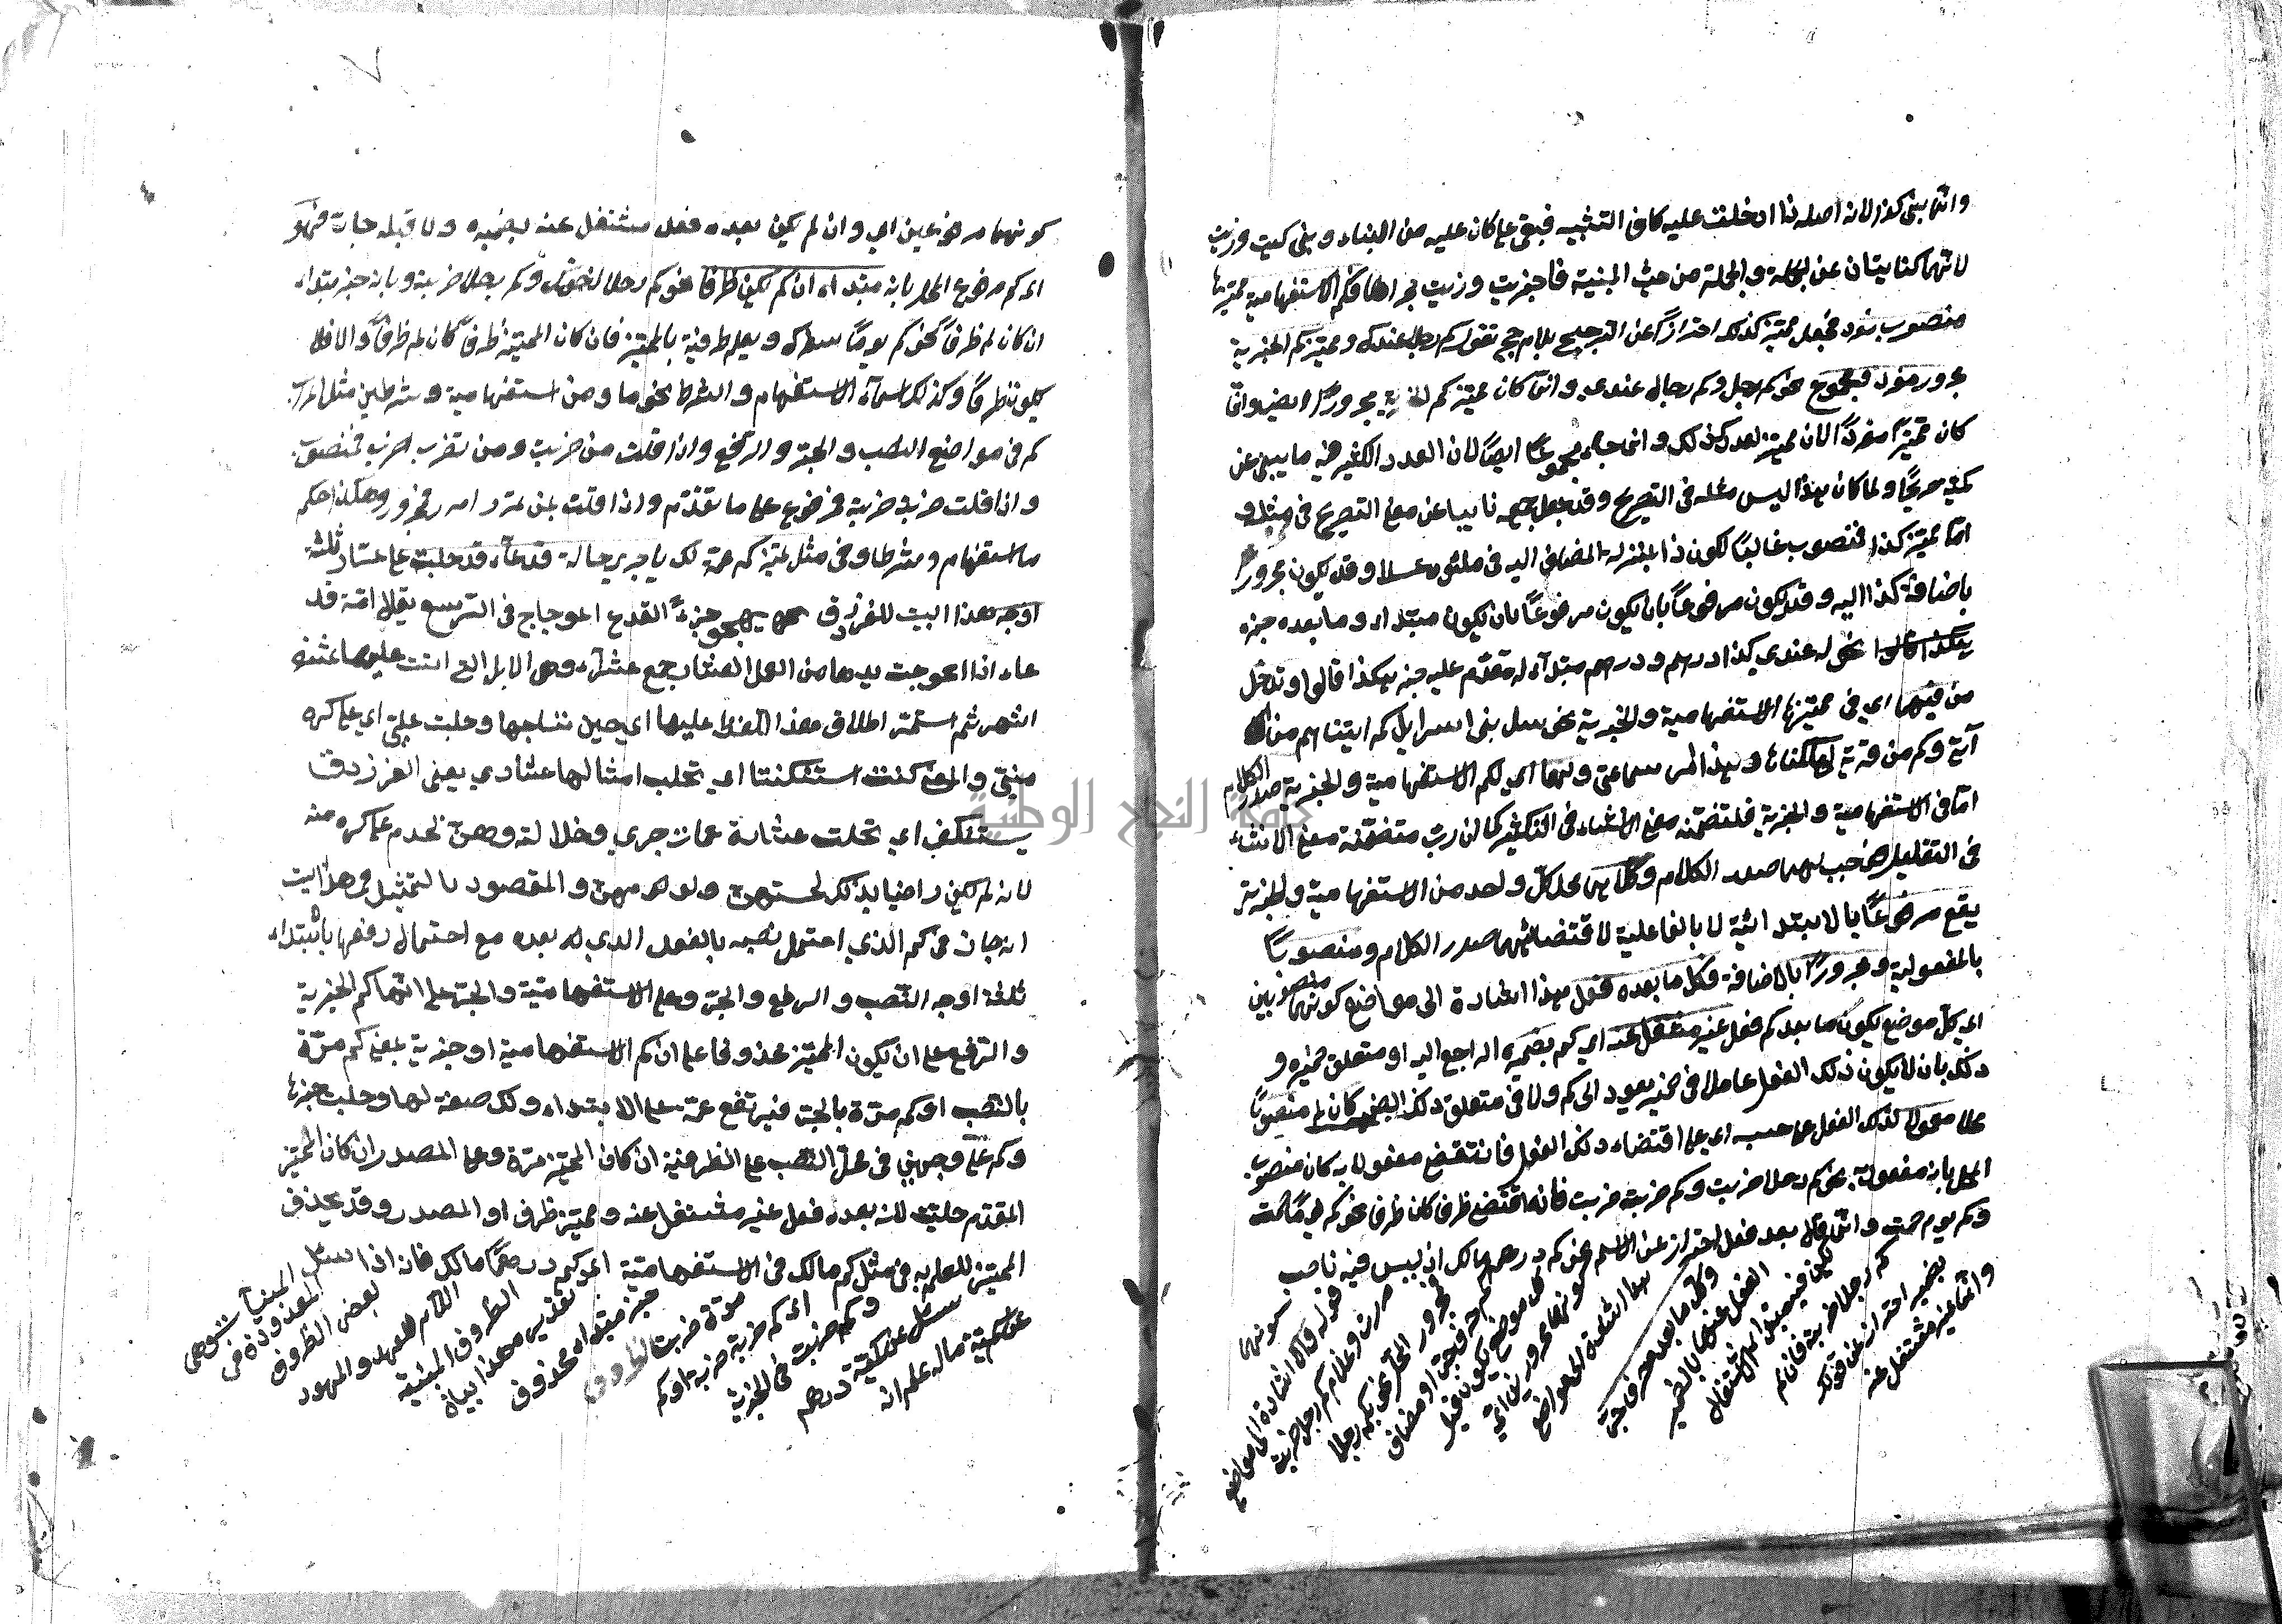 وانما بنى كذا لانه اصله ذا ادخلت عليه كاف التشبيه فبقي على ما كان عليه من البناء وبنى كيت وذيت
لانهما كنايتان عن الجملة والجملة من حيث المبنية فاجريت وذيت مجراها فكم الاستفهامية مميزها
منصوب مفرد فجعل مميز كذلك احترازا عن الترجيح بلا مرجح تقول كم رجلا عندك ومميز كم الخبرية
مجرور مفرد ومجموع نحو كم رجل وكم رجال عندي وانما كان مميز كم الخبرية مجرورا ايضا وانما
كان مميزا مفردا لان مميز العدد كذلك وانما جاء مجموعا ايضا لان العدد الكثير فيه ما يبنى عن
كميته صريحا ولما كان هذا ليس مثله في التصريح وقد جعل جمعه نايبا عن معنى التصريح في مثله و
اما مميز كذا فمنصوب غالبا لكون ذا بمنزلة المضاف اليه في ملئوه عسلا وقد يكون مجرورا
باضافة كذا اليه وقد يكون مرفوعا بان يكون مرفوعا بان يكون مبتداء وما بعده خبره
نحو له عندي كذا درهم ودرهم مبتداء له مقدم عليه خبره هكذا قالوا وتدخل
من فيهما اي في مميزها الاستفهامية والخبرية نحو سل بنى اسرايل كم اتيناهم من
آية وكم من قرية اهلكناها وهذا امر سماعي ولهما اي لكم الاستفهامية والخبرية صدر الكلام
اما في الاستفهامية والخبرية فلتضمنه معنى الانشاء في التكثير كما ان رب متضمنة معنى الانشاء
في التقليل فوجب لهما صدر الكلام وكلاهما اي كل واحد من الاستفهامية والخبرية
يقع مرفوعا بالابتدائية لا بالفاعلية لاقتضائهما صدر الكلام ومنصوبا
بالمفعولية ومجرورا بالاضافة فكل ما بعده فعل هذا اشارة الى مواضع كونهما منصوبين
اي كل موضع يكون ما بعد كم فعل غير مشتغل عنه اي كم بضميره الراجع اليه او متعلق ضميره و
ذلك بان لا يكون ذلك الفعل عاملا في ضمير يعود الى كم ولا في متعلق ذلك الضمير كان كم منصوبا
معمولا لذلك الفعل على حسبه اي على اقتضاء ذلك الفعل فان اقتضى مفعولا به كان منصوب
المحل بانه مفعول به نحو كم رجلا ضربت وكم ضربة ضربت فان اقتضى ظرفا كان ظرفا نحو كم يوما صمت
وكم يوم صمت وانما قال بعده فعل احتراز عن الاسم نحو كم درهم مالك اذ ليس فيه ناصب
وانما غير مشتغل عنه
بضميره احتراز عن قولك
كم رجلا ضربته فان كم
فيه مبتدا لاشتغال
الفعل عنها بالضمير
وكل ما قبله حرف جر
هذا اشارة الى مواضع
كونها مجرورين اي
كل موضع يكون قبل
كم حرف جر او مضاف
فمجرور المحل نحو بكم رجلا
مررت وغلام كم رجل ضربت
قوله والا اشارة الى مواضع
كونهما
كونهما مرفوعين اي وان لم يكن بعده فعل مشتغل عنه بضميره ولا قبله جار فهو
اي كم مرفوع المحل بانه مبتداء ان لم يكن ظرفا نحو كم رجلا اخوتك وكم رجلا ضربته وبانه خبر مبتداء
ان كان كم ظرفا نحو كم يوما سفرك ويعلم ظرفية بالمميز فان كان المميز ظرفا كان كم ظرفا والا فلا
يكون ظرفا وكذلك اسماء الاستفهام والشرط نحو ما ومن استفهامية وشرطين مثل اعراب
كم في مواضع النصب والجر والرفع واذا قلت من ضربت ومن تضرب اضرب فمنصوب
واذا قلت من ضربته فمرفوع على ما تقدم واذا قلت بمن تمرر امرر فمجرور وهكذا حكم
ما استفهام وشرطا وفي مثل مميز كم عمة لك يا جرير وخالة فدعاء قد حلبت على عشاري ثلثة
اوجه هذا البيت للفرزدق يهجو جريرا القدع اعوجاج في الرسغ يقال امة فد
عاء اذا اعوجت يدها من العمل العشار جمع عشراء وهي الابل التي اتت عليها عشرة
اشهر ثم استمر اطلاق هذا اللفظ عليها اي حين نتاجها وحلبت علي اي على كره
مني والمعنى كنت استنكفتا اي تحلب امثالها عشاري يعني الفرزدق
يستنكف اي تحلت عشارة عمات جرير وخالاته وهن تخدم على كره منه
لانه لم يكن راضيا بذلك لخستهن والمقصود بالتمثيل في هذا البيت
انه جاز في كم الذي احتمل نصبه بالفعل الذي بعده مع احتمال رفعها بابتداء
ثلثة اوجه النصب والرفع والجر وعلى الاستفهامية والجر على انها كم الخبرية
والرفع على ان يكون المميز محذوفا على ان كم الاستفهامية او خبرية بمعنى كم مرة
بالنصب او كم مرة بالجر فيرتفع عمة على الابتداء ولك صفة لها وحلبت خبرها
وكم على وجهين في محل النصب على الظرفية ان كان المميز مرة وعلى المصدر ان كان المميز
المقدم حلبت لانه بعده فعل غير مشتغل عنه ومميز ظرف او المصدر وقد يحذف
المميز للعلم به في مثل كم مالك في الاستفهامية اي كم درهما مالك فانه اذا سئل
عن كمية ماله علم انه
سئل عن كمية درهم
وكم ضربت في الخبرية
اي كم ضربة ضربت او كم
مرة ضربت الظروف
خبر مبتداء محذوف
تقديره هذا بيان
الظروف المبنية
اللام للعهد والمعهود
بعض الظروف
المعدودة في
المبنيات وهي
جامعة النجاح الوطنية